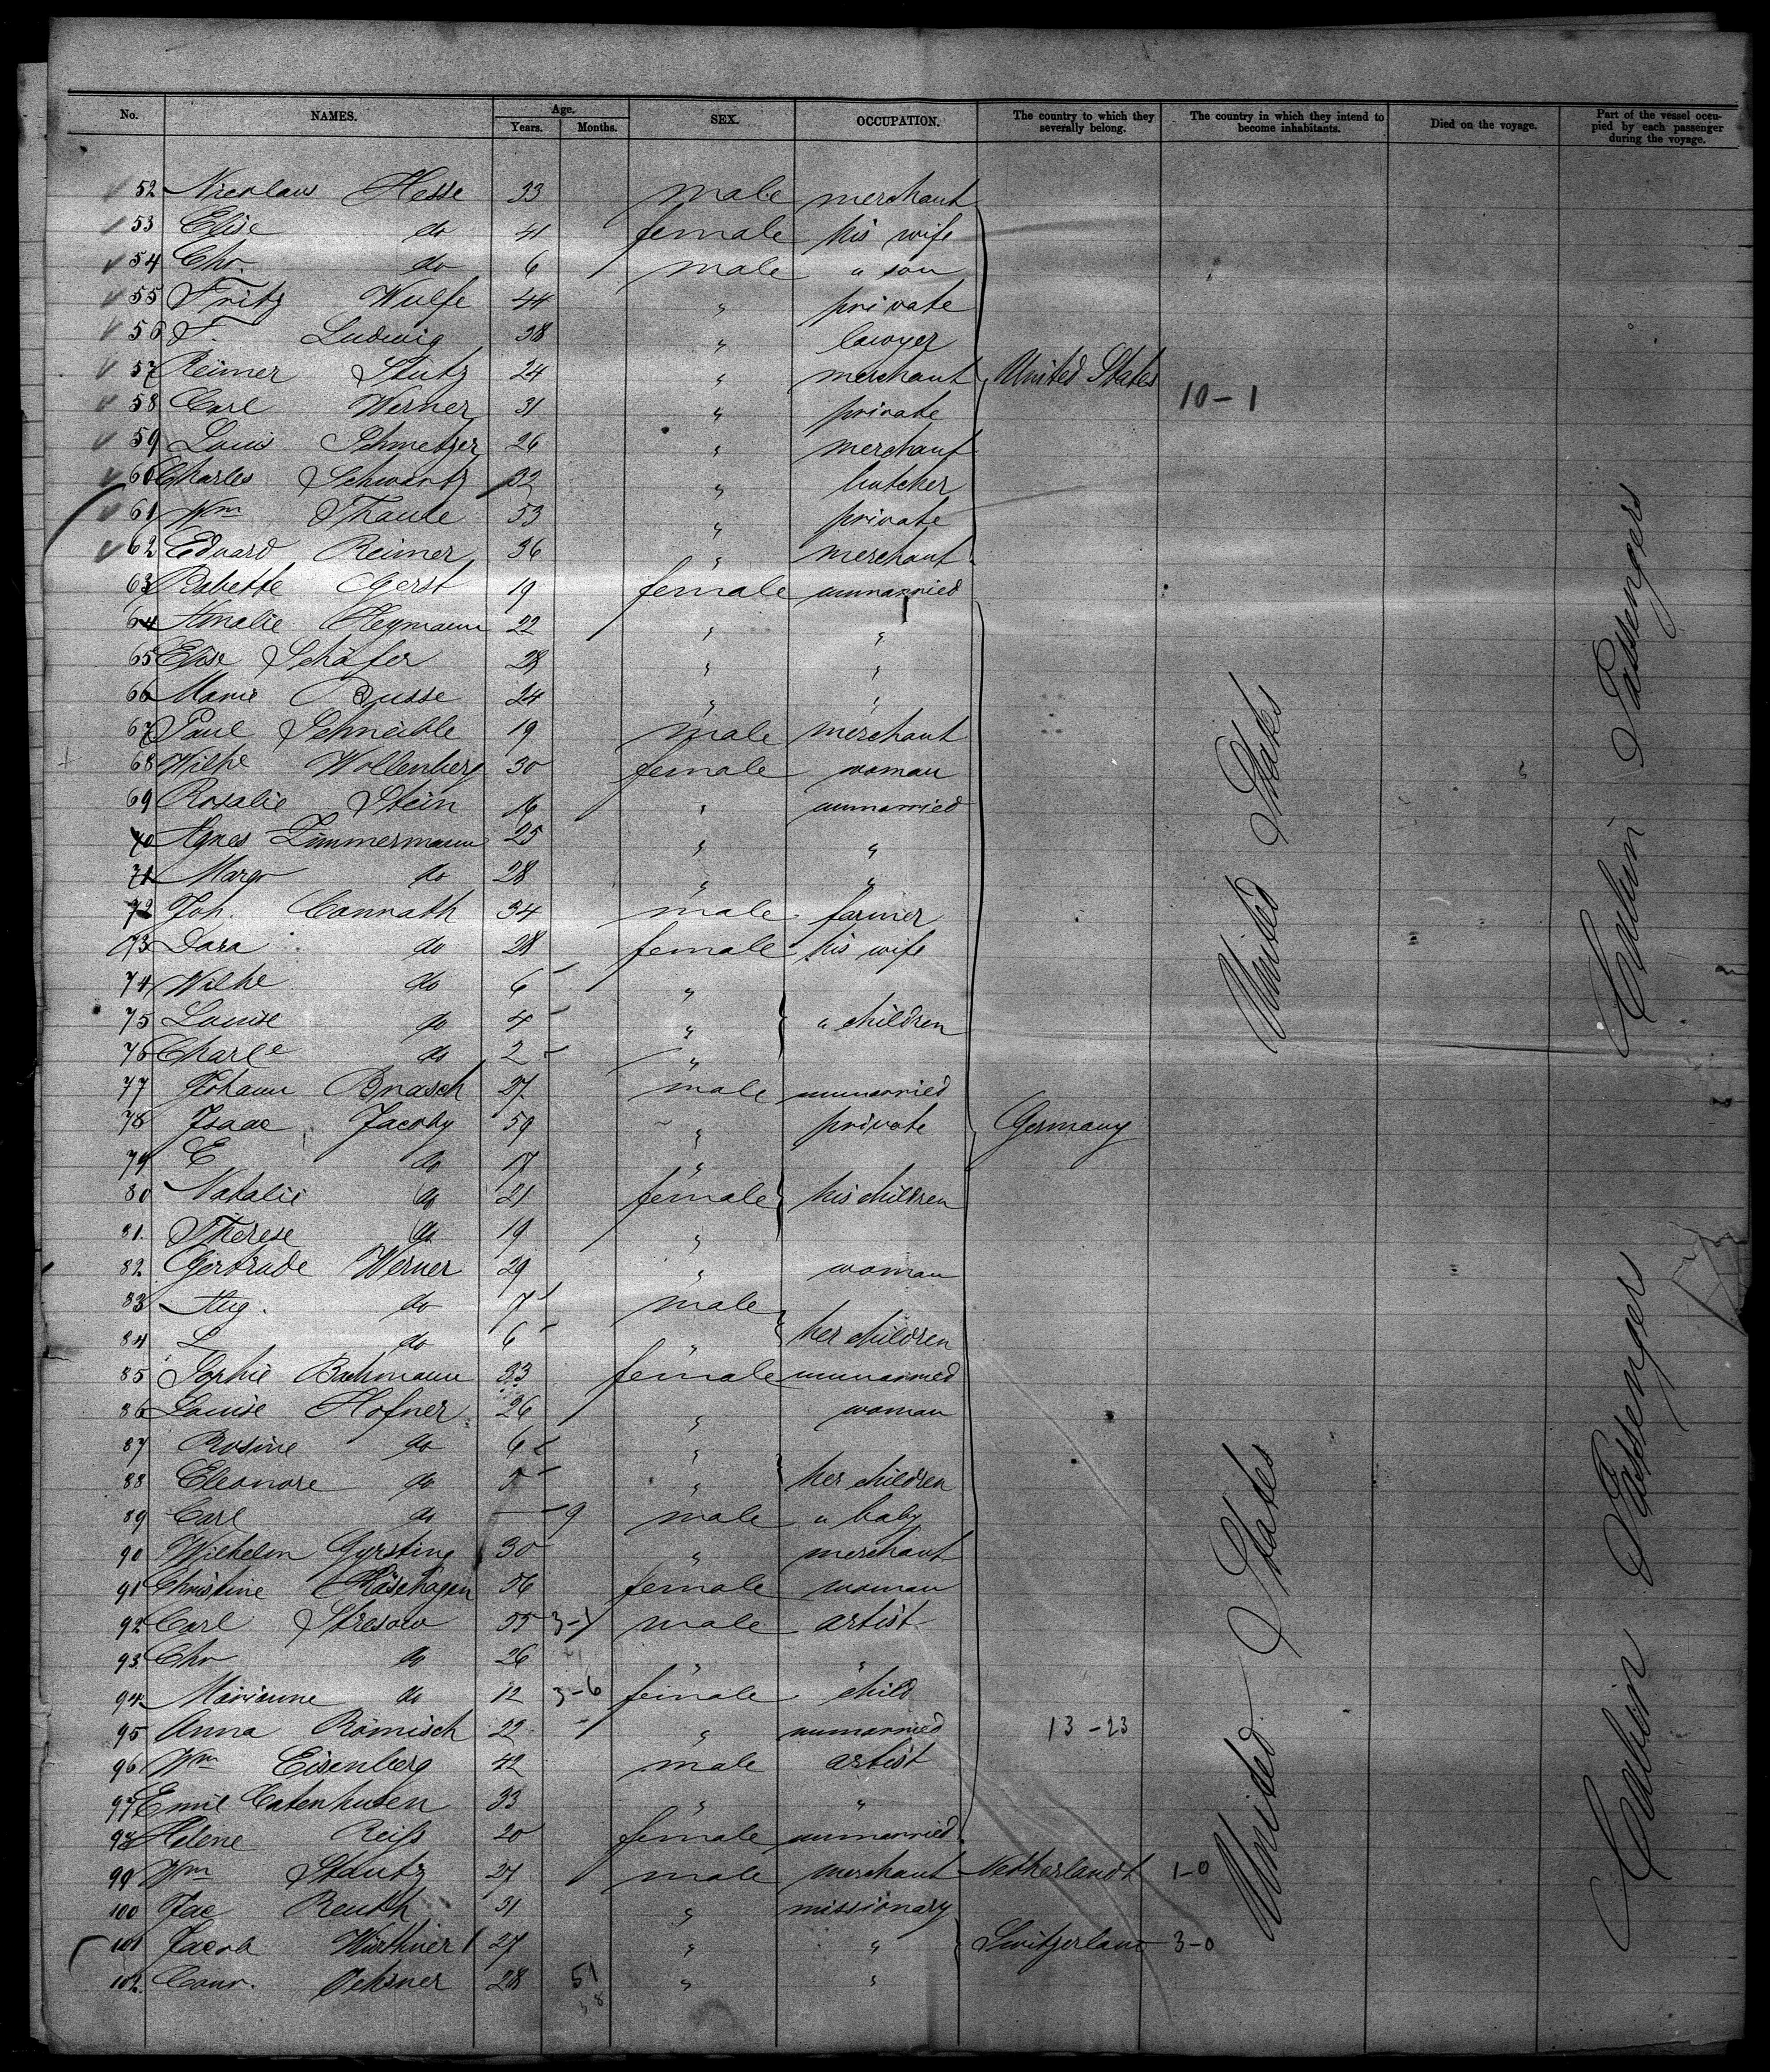 No. NAMES. Age. Years. Months. SEX. OCCUPATION. The country to which they severally belong. The country in which they intend to become inhabitants. Died on the voyage. Part of the vessel occupied by each passenger during the voyage.
52 Nicolaus Hesse 33 male merchant
53 Elise do 41 female his wife
54 Chr. do 6 male " son
55 Fritz Wulfe 44 " private
56 F. Ludwig 38 " lawyer
57 Reimer Stutz 24 " merchant United States
58 Carl Werner 31 " private 10-1
59 Louis Schmetzer 26 " merchant
60 Charles Schwartz 32 " butcher
61 Wm Thaule 53 " private
62 Eduard Reimer 36 " merchant
63 Babette Gerst 19 female unmarried
64 Amalie Heymann 22 " "
65 Elise Schäfer 28 " "
66 Marie Busse 24 " "
67 Paul Schneible 19 male merchant
68 Wilhe Wollenberg 30 female woman
69 Rosalie Stein 16 " unmarried
70 Agnes Zimmermann 25 " "
71 Margr do 28 " "
72 Joh. Conrath 34 male farmer
73 Dora do 28 female his wife
74 Wilhe do 6 "
75 Louise do 4 " " children
76 Charle do 2 "
77 Johann Brasch 27 male unmarried
78 Isaac Jacoby 59 " private Germany
79 E do 17 "
80 Natalie do 21 female his children
81. Therese do 19 "
82 Gertrude Werner 29 " woman
83 Aug. do 7 male
84 L do 6 " her children
85 Sophie Bachmann 33 female unmarried
86 Louise Hofner 26 " woman
87 Rosine do 6 "
88 Eleonore do 5 " her children
89 Carl do — 9 male " baby
90 Wilhelm Gyrsting 30 " merchant
91 Christine Käsehagen 56 female woman
92 Carl Stresow 55 3-1 male artist
93 Chr do 26 " "
94 Marianne do 12 3-6 female child
95 Anna Römisch 22 " unmarried 13-23
96 Wm Eisenberg 42 male artist
97 Emil Catenhusen 33 " "
98 Helene Reiss 20 female unmarried
99 Wm Stautz 27 male merchant Netherlandt 1-0
100 Jac Reuth 31 " missionary
101 Jacob Würthner 27 " " Switzerland 3-0
102. Conr. Ochsner 28 51 " "
United States
Cabin Passengers
United States
Cabin Passengers